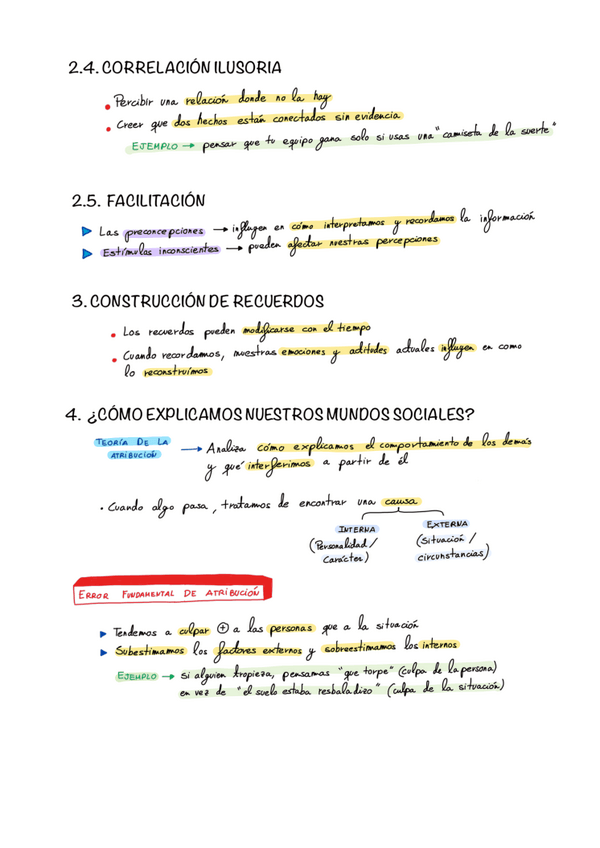 2.4. CORRELACIÓN ILUSORIA
• Percibir una relación donde no la hay
• Creer que dos hechos están conectados sin evidencia
EJEMPLO → pensar que tu equipo gana solo si usas una "camiseta de la suerte"
2.5. FACILITACIÓN
▶ Las preconcepciones → influyen en cómo interpretamos y recordamos la información
▶ Estímulos inconscientes → pueden afectar nuestras percepciones
3. CONSTRUCCIÓN DE RECUERDOS
• Los recuerdos pueden modificarse con el tiempo
• Cuando recordamos, nuestras emociones y actitudes actuales influyen en como
lo reconstruímos
4. ¿CÓMO EXPLICAMOS NUESTROS MUNDOS SOCIALES?
TEORÍA DE LA
ATRIBUCIÓN
→ Analiza cómo explicamos el comportamiento de los demás
y qué interferimos a partir de él
• Cuando algo pasa, tratamos de encontrar una causa
INTERNA
(Personalidad /
Carácter)
EXTERNA
(Situación /
circunstancias)
ERROR FUNDAMENTAL DE ATRIBUCIÓN
▶ Tendemos a culpar ⊕ a las personas que a la situación
▶ Subestimamos los factores externos y sobreestimamos los internos
EJEMPLO → si alguien tropieza, pensamos "que torpe" (culpa de la persona)
en vez de "el suelo estaba resbaladizo" (culpa de la situación)